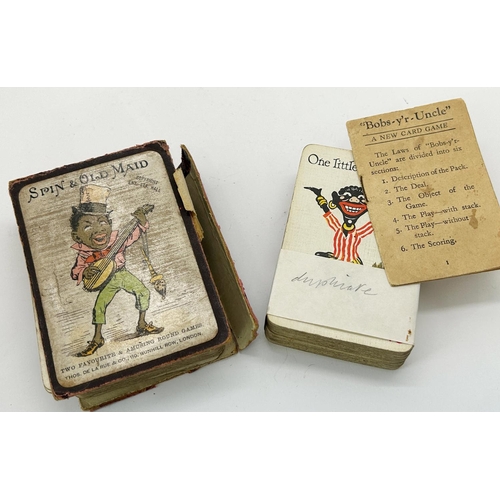 SPIN & OLD MAID
TWO FAVOURITE & AMUSING ROUND GAMES
THOS. DE LA RUE & CO. LTD. BUNHILL ROW, LONDON.
One Little
duplicate
"Bobs-y'r-Uncle"
A NEW CARD GAME
The Laws of "Bobs-y'r-
Uncle" are divided into six
sections:
1. Description of the Pack.
2. The Deal.
3. The Object of the
Game.
4. The Play—with stack.
5. The Play—without
stack.
6. The Scoring.
1